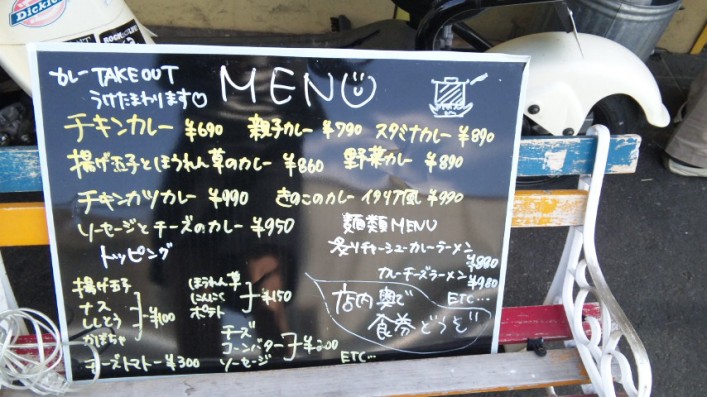 Dickies
カレー TAKE OUT
うけたまわります
MENU
チキンカレー ¥690 親子カレー ¥790 スタミナカレー ¥890
揚げ玉子とほうれん草のカレー ¥860 野菜カレー ¥890
チキンカツカレー ¥990 きのこのカレー イタリア風 ¥990
ソーセージとチーズのカレー ¥950 麺類MENU
トッピング
炙りチャーシューカレーラーメン
カレーチーズラーメン ¥980
ETC...
揚げ玉子
ナス
ししとう
かぼちゃ
¥100
チーズトマト ¥300
ほうれん草
にんにく
ポテト
¥150
チーズ
コーンバター
ソーセージ
¥200
ETC...
店内奥で
食券どうぞ